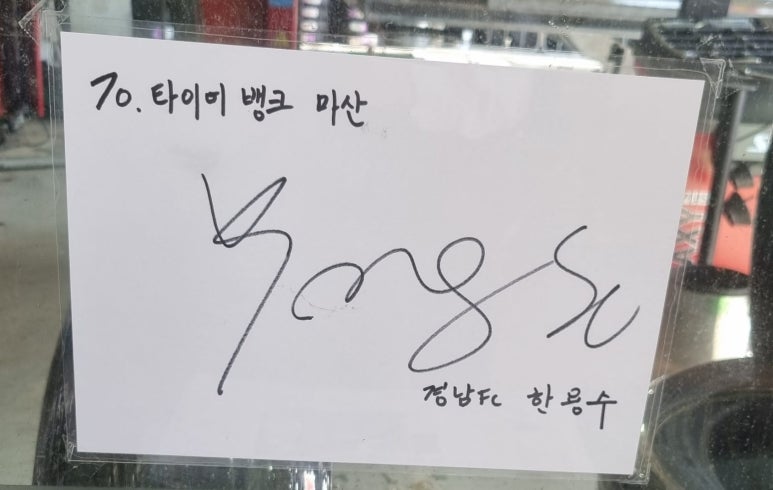 70. 타이어 뱅크 마산
경남FC 한용수